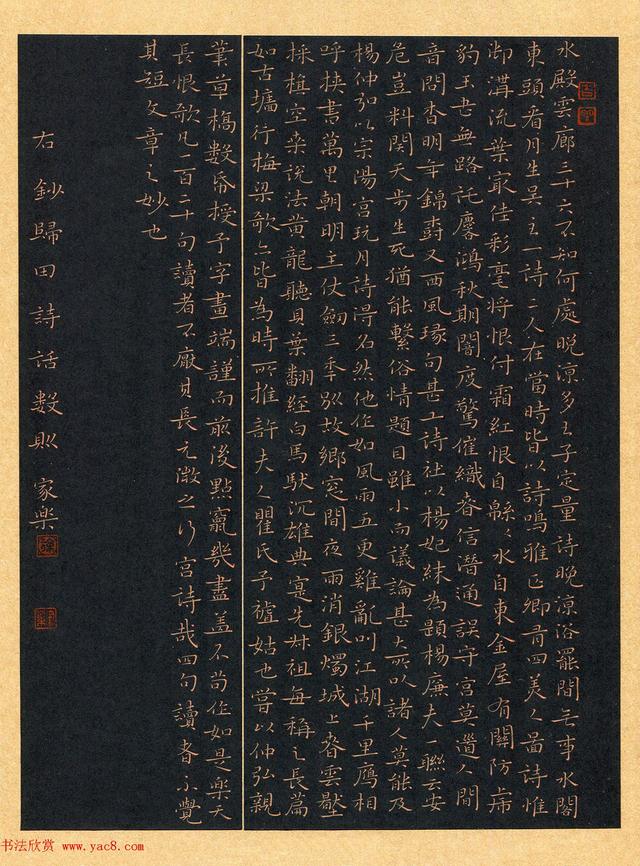 水殿雲廊三十六不知何處晚涼多主子定量詩晚涼浴罷閒無事水閣
東頭看月生吴主一詩二人在當時皆以詩鳴雅正卿有四美人啚詩惟
御溝流葉最佳彩毫將恨付霜紅恨自緜々水自東金屋有關防虎
豹玉書無路託鱗鴻秋期闇度驚催織春信潛通誤守宮莫道人間
音問杳明年錦樹又西風琢句甚工詩社以楊妃襪為題楊廉夫一聯云安
危豈料關天步生死猶能繫俗情題目雖小而議論甚大所以諸人莫能及
楊仲弘以宗陽宮玩月詩得名然他作如風雨五更雞亂叫江湖千里鴈相
呼挾書萬里朝明主仗劍三年別故鄉窓間夜雨消銀燭城上春雲壓
採植空桒說法黃龍聽貝葉翻經白馬馱沉雄典寔先叔祖每稱之長篇
如古墻行梅梁歌亦皆為時所推許夫人瞿氏予祖姑也嘗以仲弘親
筆草稿數帋授予字畫端謹而前後點竄幾盡蓋不苟作如是樂天
長恨歌凡一百二十句讀者不厭其長元微之行宮詩才四句讀者不覺
其短文章之妙也
右鈔歸田詩話數則 家樂
书法欣赏 www.yac8.com